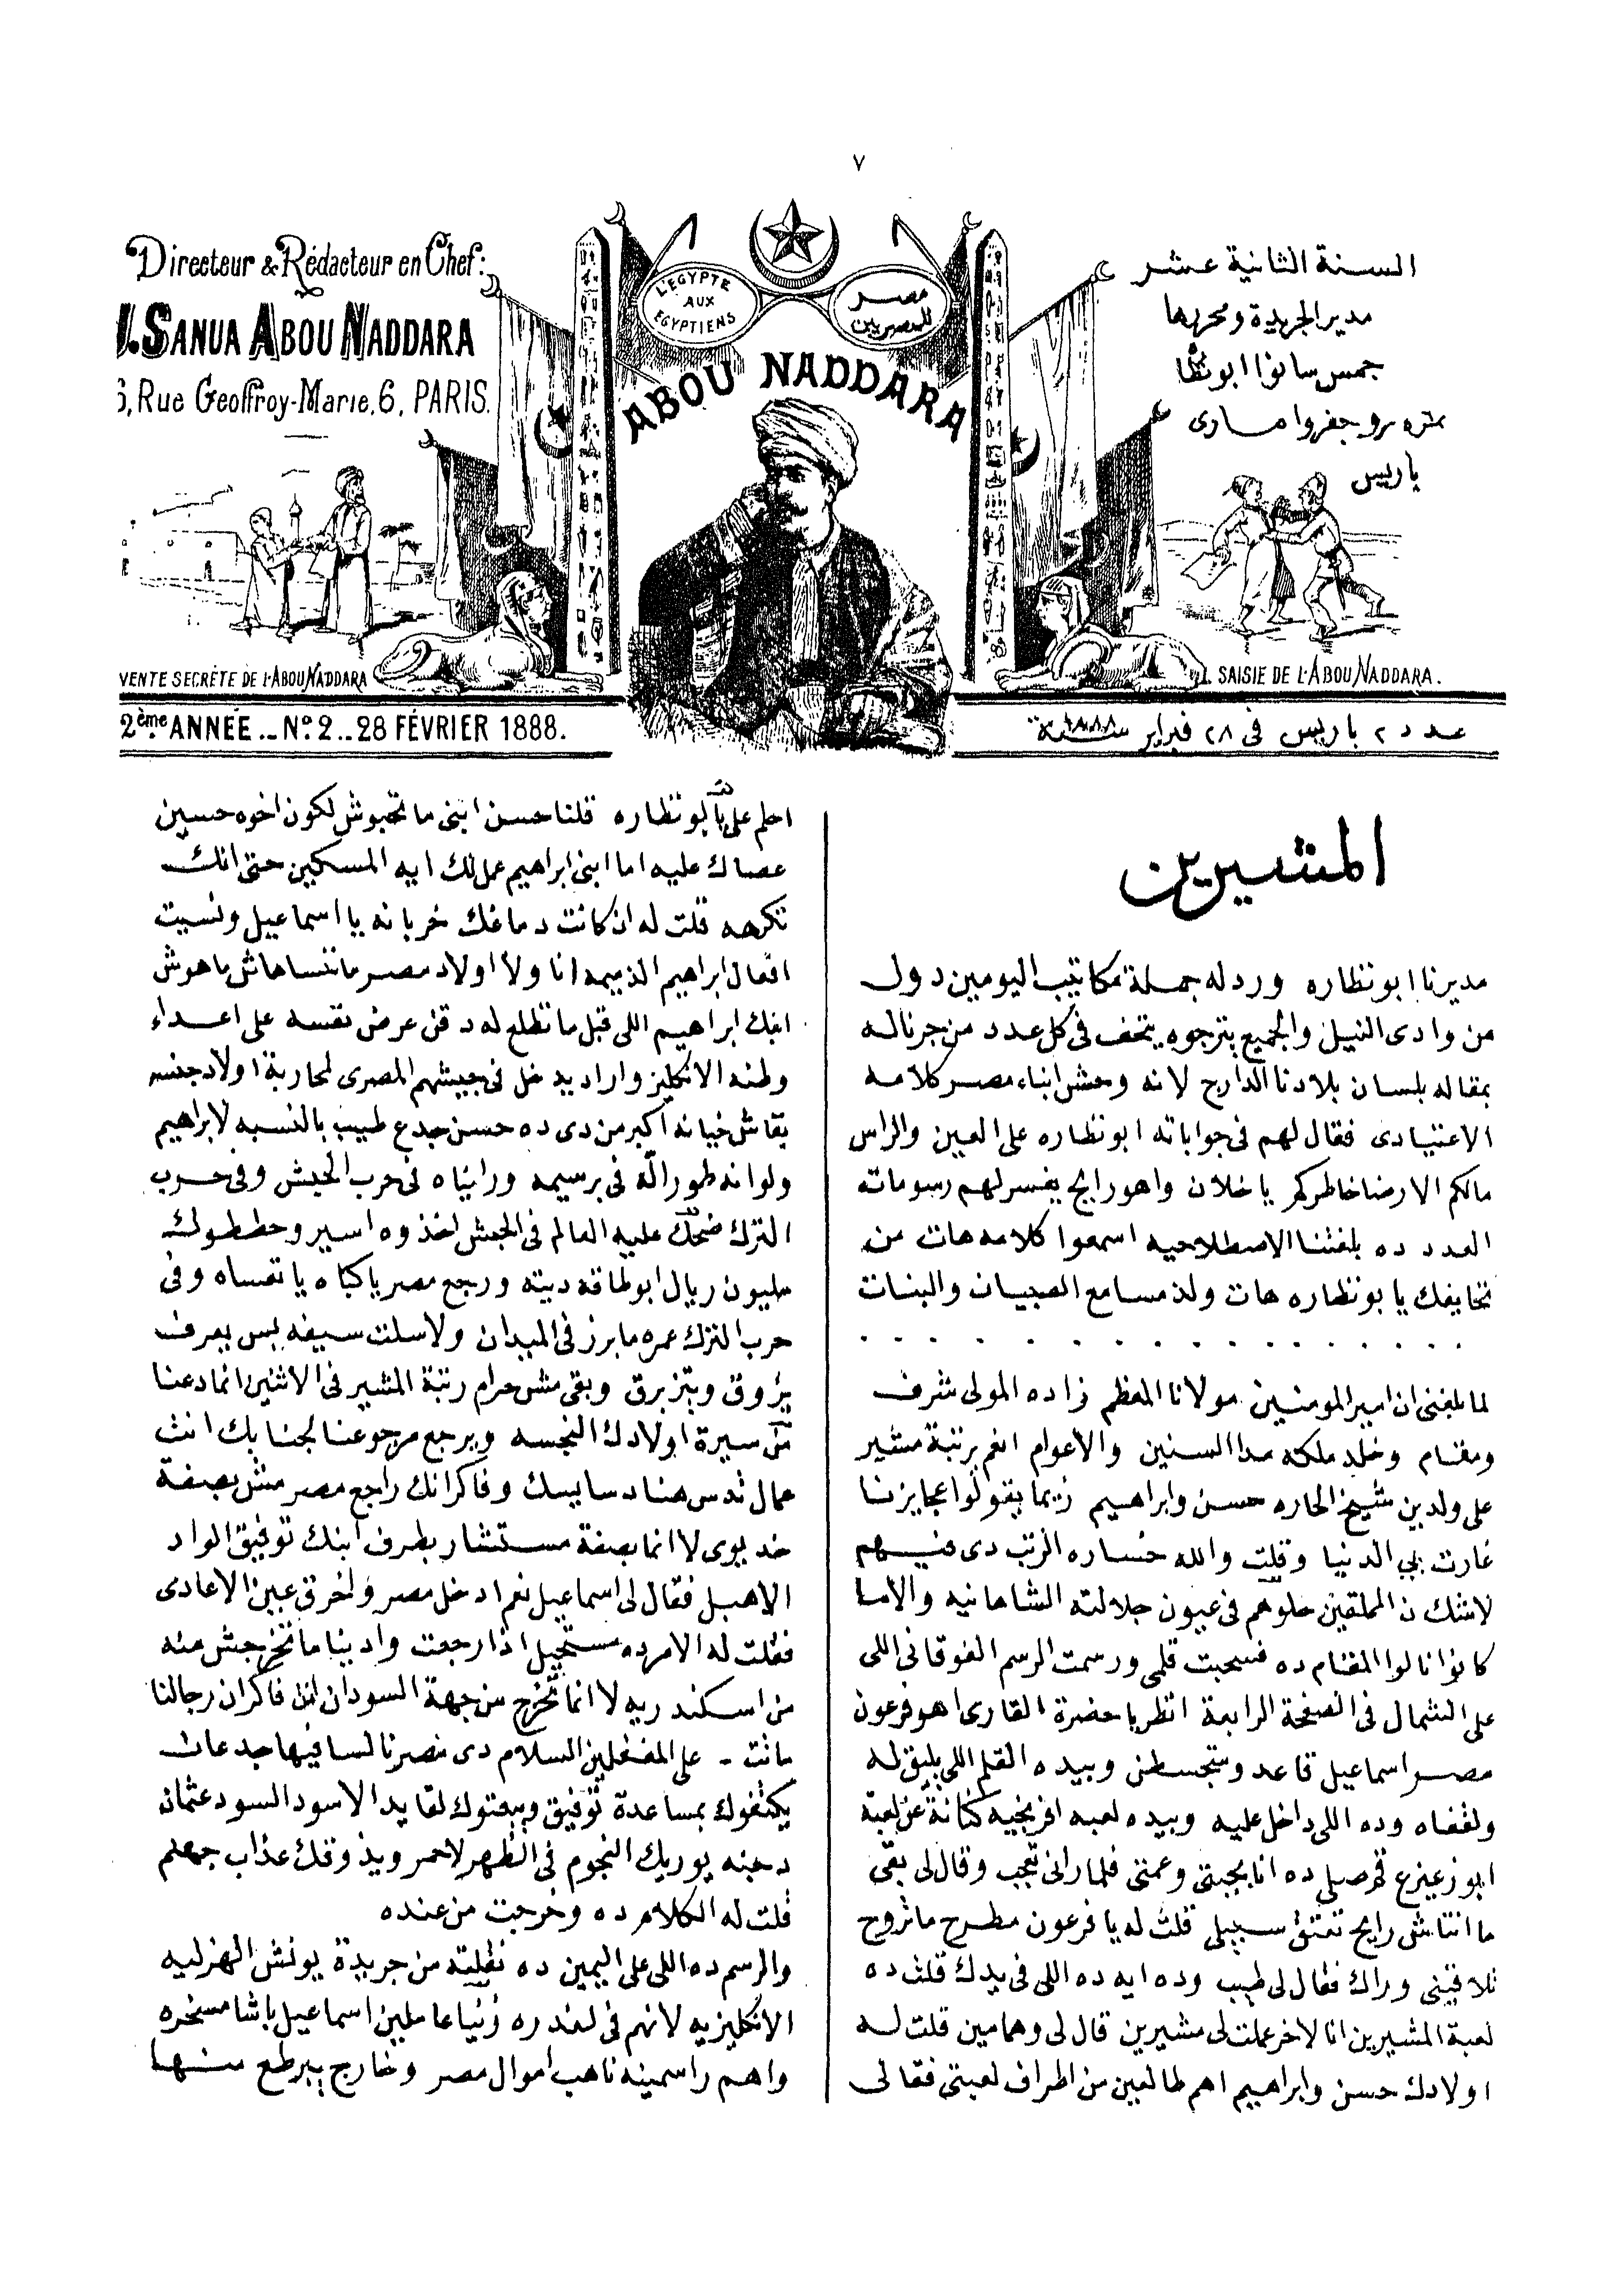 ٧
Directeur & Rédacteur en Chef:
J. SANUA ABOU NADDARA
6, Rue Geoffroy-Marie, 6, PARIS.
L'EGYPTE
AUX
EGYPTIENS
مصر
للمصريين
ABOU NADDARA
السنة الثانية عشر
مدير الجريدة ومحررها
جمس سانوا ابو نظا
نمره ٦ رو جفروا مارى
باريس
VENTE SECRÈTE DE L'ABOU NADDARA
SAISIE DE L'ABOU NADDARA.
2ème ANNÉE _ No. 2 _ 28 FÉVRIER 1888.
عدد ٢ باريس فى ٢٨ فبراير سنة ١٨٨٨
المشيرين
مديرنا ابو نظاره ورد له جملة مكاتيب اليومين دول
من وادى النيل والجميع بترجوه يتحف فى كل عدد من جرناله
بمقاله بلسان بلادنا الدارج لانه وحش ابناء مصر كلامه
الاعتيادى فقال لهم فى جواباته ابو نظاره على العين والراس
مالكم الا رضا خاطركم يا خلان واهو رايح يفسر لهم رسومات
العدد ده بلغتنا الاصطلاحيه اسمعوا كلامه هات من
تحايفك يا بو نظاره هات ولذ مسامع الصبيان والبنات
لما بلغنى ان امير المومنين مولانا المعظم زاده المولى شرف
ومقام وخلد ملكه مدا السنين والاعوام انعم برتبة مشير
على ولدين شيخ الحاره حسن وابراهيم زيما يقولوا عجايزنا
غارت بى الدنيا وقلت والله خساره الرتب دى فيهم
لا شك ان الملقين حلوهم فى عيون جلالته الشاهانيه والا ما
كانوا نالوا المقام ده فسحبت قلمى ورسمت الرسم الفوقانى اللى
على الشمال فى الصفحة الرابعة انظر يا حضرة القارى اهو فرعون
مصر اسماعيل قاعد ومتجسطن وبيده القلم اللى يليق له
ولقفاه وده اللى داخل عليه وبيده لعبه افرنجيه كنانة عن لعبة
ابو زعيزع قرصيلى ده انا بجبتى وعمتى فلما رانى تعجب وقال لى بقى
ما انتاش رايح تعتق سبيلى قلت له يا فرعون مطرح ما تروح
تلاقينى وراك فقال لى طيب وده ايه ده اللى فى يدك قلت ده
لعبة المشيرين انا لاخر عملت لى مشيرين قال لى وهما مين قلت له
اولادك حسن وابراهيم اهم طالعين من اطراف لعبتى فقال لى
احلم على يا ابو نظاره قلنا حسن ابنى ما تحبوش لكون اخوه حسين
عصاك عليه اما ابنى ابراهيم عمل لك ايه المسكين حتى انك
تكرهه قلت له ان كانت دماغك خربانه يا اسماعيل ونسيت
افعال ابراهيم الذميمه انا ولا اولاد مصر ما ننساهاش ما هوش
ابنك ابراهيم اللى قبل ما تطلع له دقن عرض نفسه على اعداء
وطنه الانكليز واراد يدخل فى جيشهم المصرى لمحاربة اولاد جنسه
بقاش خيانه اكبر من دى ده حسن جدع طيب بالنسبه لابراهيم
ولو انه طور الله فى برسيمه وراينياه فى حرب الحبش وفى حرب
الترك ضحك عليه العالم فى الحبش اخذوه اسير وحططوك
مليون ريال ابو طاقه ديته ورجع مصر ياكباه ياتعساه وفى
حرب الترك عمره ما برز فى الميدان ولا سلت سيفه بس يعرف
يزوق ويتزبرق وبقى مش حرام رتبة المشير فى الاثنين انما دعنا
من سيرة اولادك النجسه ويرجع مرجوعنا لجنابك انت
عمال تدس هنا دسايسك وفاكر انك راجع مصر مش بصفة
خديوى لا انما بصفة مستشار بطرف ابنك توفيق الواد
الاهبل فقال لى اسماعيل نعم ادخل مصر واخرق عين الاعادى
فقلت له الامر ده مستحيل اذا رجعت وادينا ما تخرجش منه
من اسكندريه لا انما تخرج من جهة السودان انت فاكر ان رجالنا
ماتت - على المغفلين السلام دى مصرنا لسا فيها جدعات
يكتفوك بمساعدة توفيق ويبعتوك لقايد الاسود السود عثمان
دجنه يوريك النجوم فى الظهر لاحمر ويذوقك عذاب جهلم
قلت له الكلام ده وخرجت من عنده
والرسم ده اللى على اليمين ده نقلته من جريدة يونش الهزليه
الانكليزيه لانهم فى لندره زينا عاملين اسماعيل باشا مسخره
واهم راسمينه ناهب اموال مصر وخارج يبرطع منها